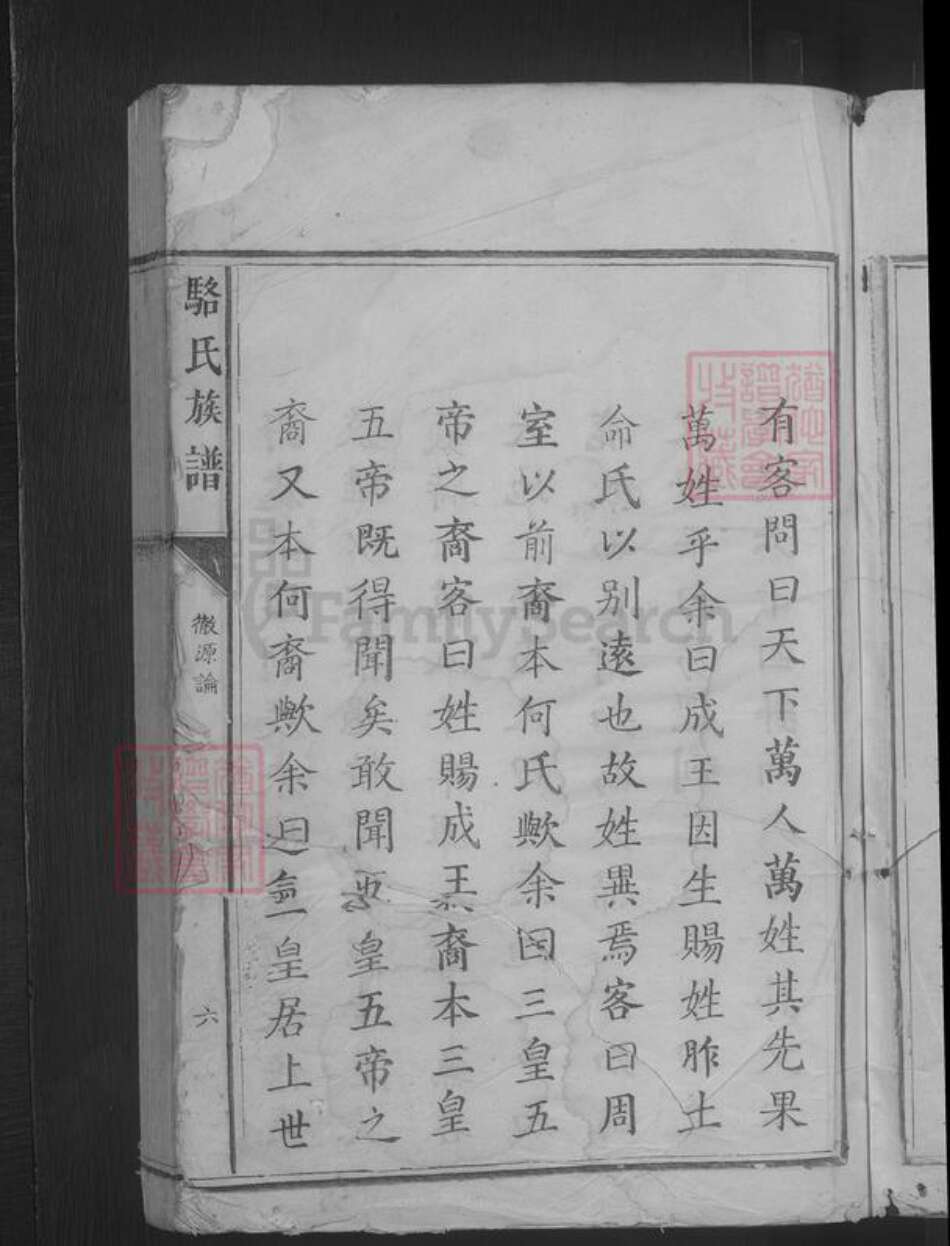 有客問曰天下萬人萬姓其先果
萬姓乎余曰成王因生賜姓胙土
命氏以別遠也故姓異焉客曰周
室以前裔本何氏歟余曰三皇五
帝之裔客曰姓賜成王裔本三皇
五帝既得聞矣敢聞皇五帝之
裔又本何裔歟余曰皇居上世
駱氏族譜
徵源論
六
猶他家譜學會收藏
猶他家譜學會收藏
FamilySearch